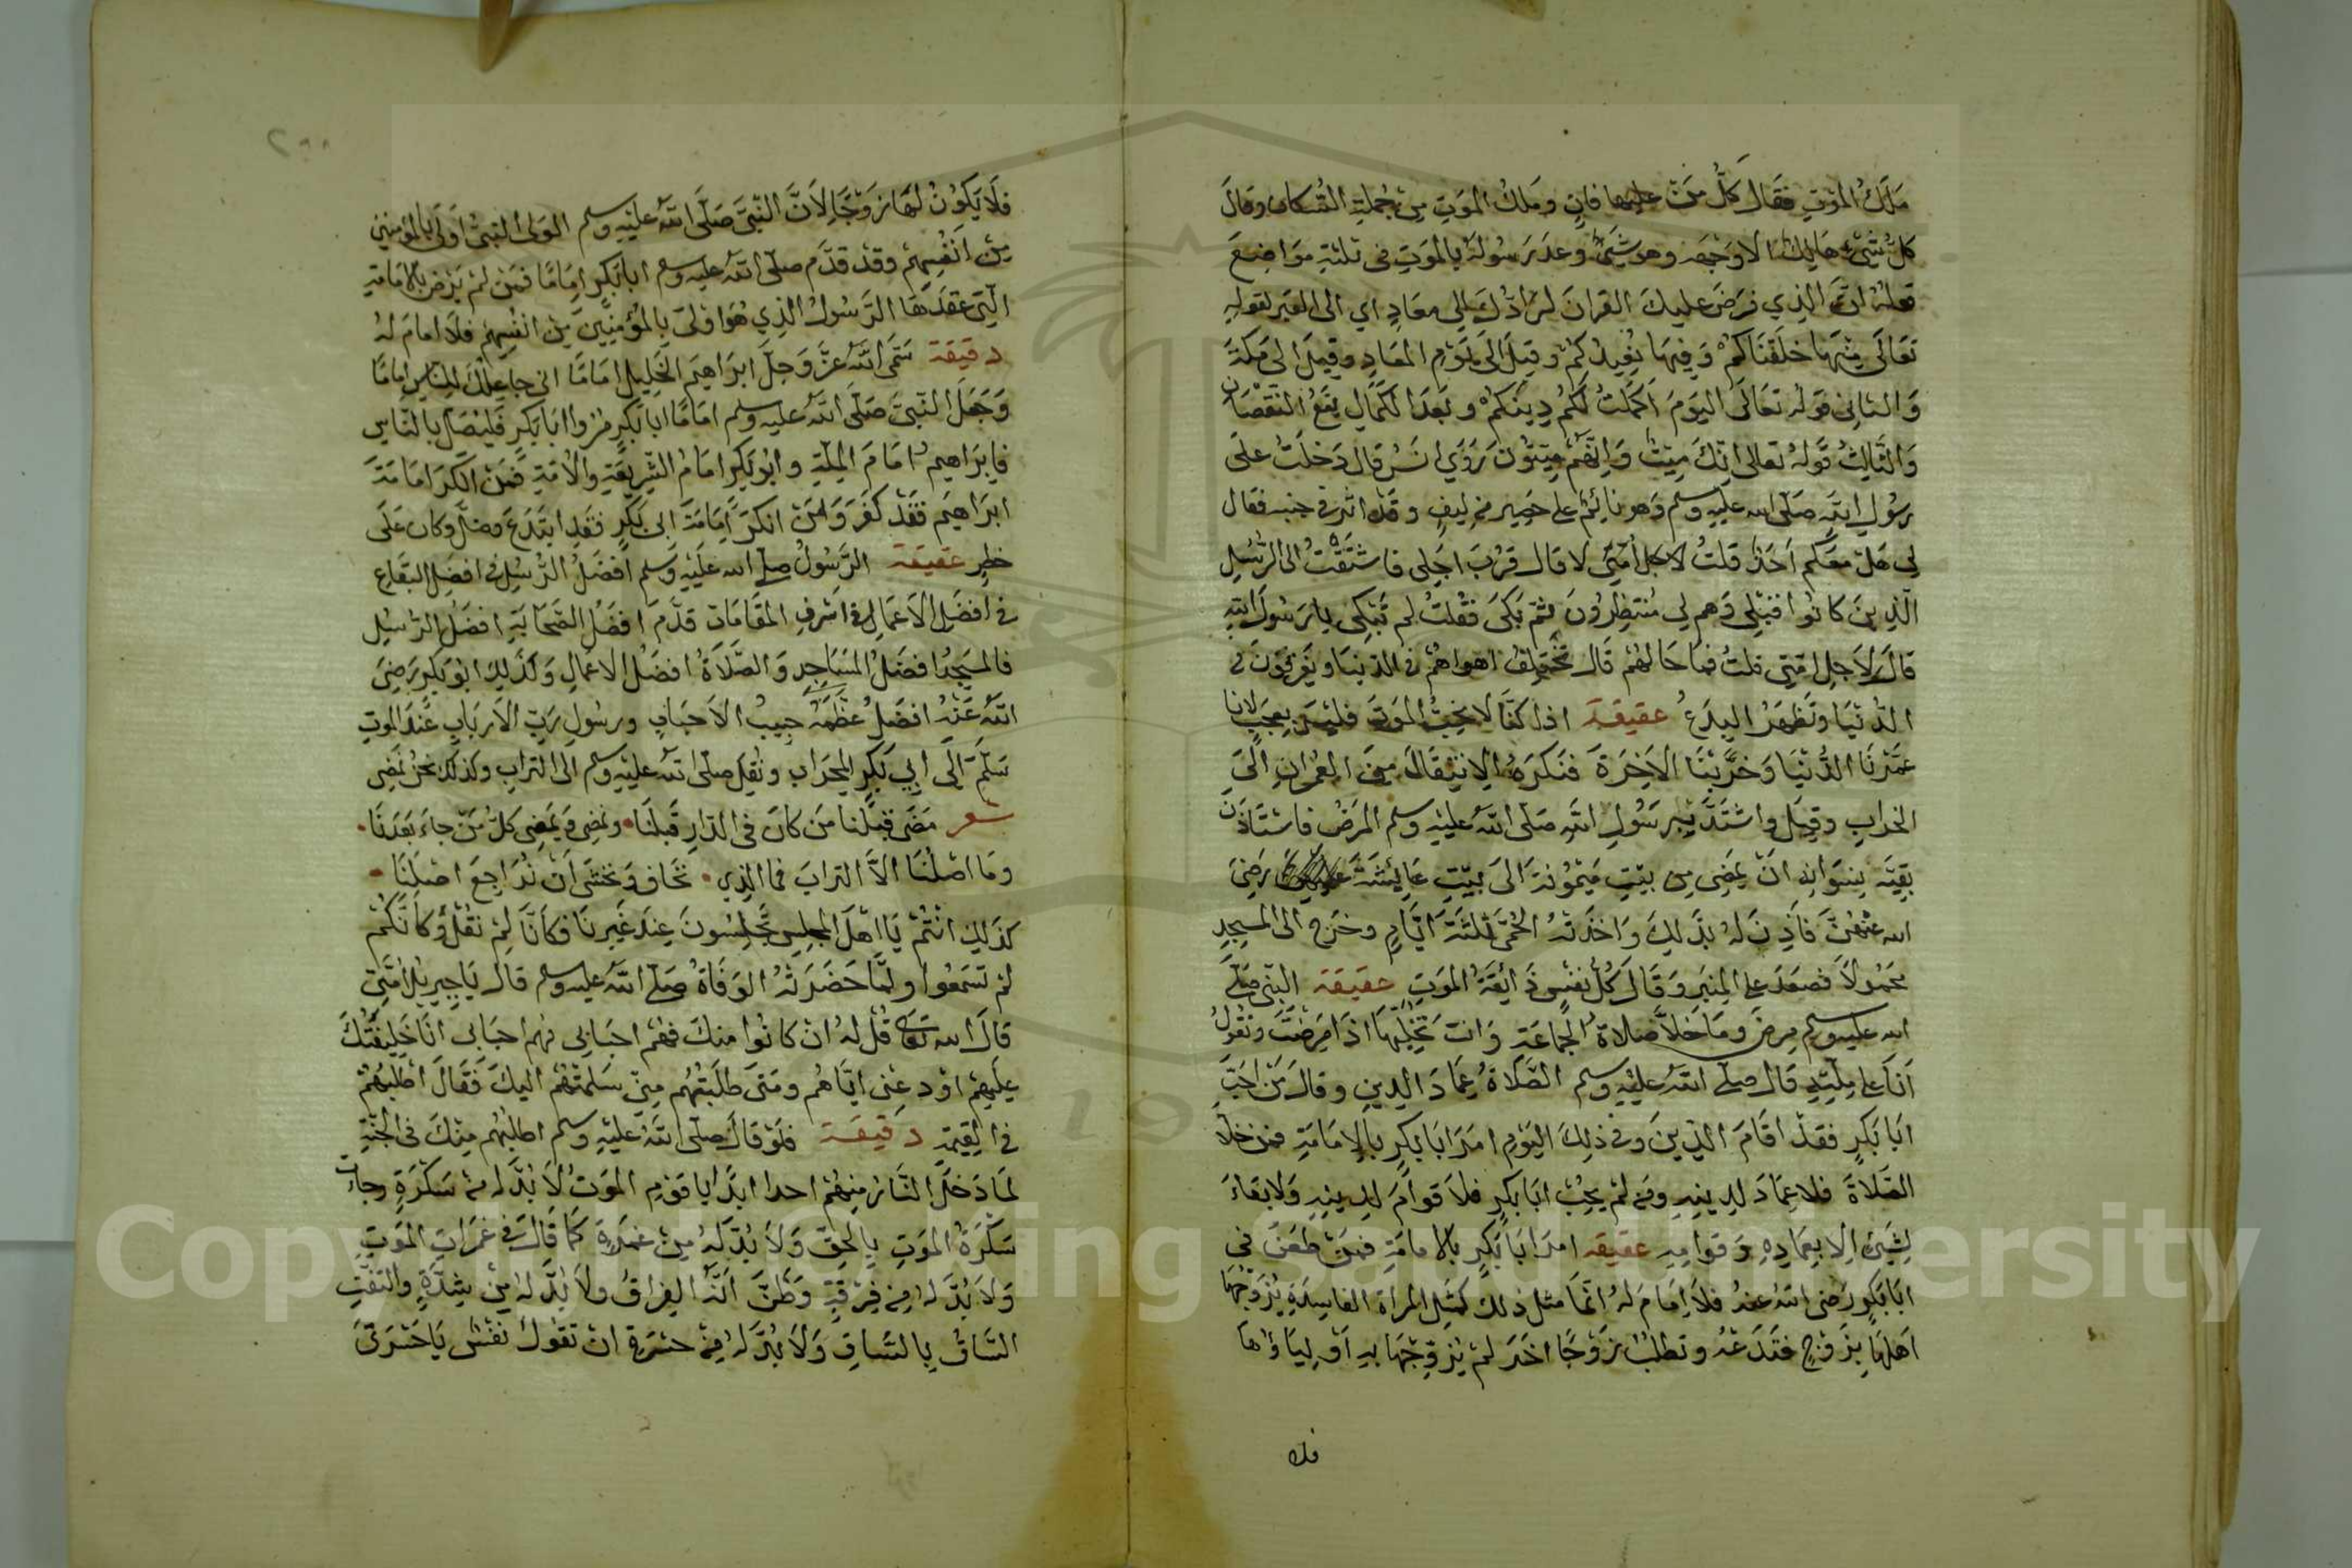 ملك الموت فقال كل من عليها فان وملك الموت من جملة السكان وقال
كل شيء هالك الا وجهه وهو شيء وعد رسوله بالموت في ثلثة مواضع
ان الذي فرض عليك القران لرادك الى معاد اي الى القبر لقوله
تعالى منها خلقناكم وفيها نعيدكم وقيل الى يوم المعاد وقيل الى مكة
والثاني قوله تعالى اليوم اكملت لكم دينكم وبعد الكمال يقع النقصان
والثالث قوله تعالى انك ميت وانهم ميتون روي انس قال دخلت على
رسول الله صلى الله عليه وسلم وهو نائم على حصير من ليف وقد اثر في جنبه فقال
لي هل معكم احد قلت لا قال قرب اجلي فاشتقت الى الرسل
الذين كانوا قبلي وهم لي منتظرون ثم بكى فقلت لم تبكى يا رسول الله
قال لاجل امتي قلت فما حالهم قال تختلف اهواهم في الدنيا ويغرقون في
الدنيا وتظهر البدع عقيقة اذا كنا لا نحب الموت فليس بعجب لانا
عمرنا الدنيا وخربنا الاخرة فنكره الانتقال من العمران الى
الخراب وقيل واشتد برسول الله صلى الله عليه وسلم المرض فاستاذن
بقية نسوانه ان يمضى من بيت ميمونة الى بيت عايشة رضي
الله عنهن فاذن له بذلك واخذته الحمى ثلثة ايام وخرج الى المسجد
محمولا فصعد على المنبر وقال كل نفس ذائقة الموت عقيقة النبي صلى
الله عليه وسلم مرض وما خلا صلاة الجماعة وانت تخليها اذا مرضت وتقول
انا على ملته قال صلى الله عليه وسلم الصلاة عماد الدين وقال من احب
ابا بكر فقد اقام الدين وفي ذلك اليوم امر ابا بكر بالامامة فمن خلا
الصلاة فلا عماد لدينه ومن لم يحب ابا بكر فلا قوام لدينه ولا بقاء
لشيء الا بعماده وقوامه عقيقة امر ابا بكر بالامامة فمن طعن في
ابا بكر رضى الله عنه فلا امام له انما مثل ذلك كمثل المراة الفاسدة يزوجها
اهلها بزوج فتدعه وتطلب زوجا اخر لم يزوجها به اولياؤها
فلا
فلا يكون لها زوجا لان النبي صلى الله عليه وسلم الولى النبي اولى بالمؤمنين
من انفسهم وقد قدم صلى الله عليه وسلم ابا بكر اماما فمن لم يرض بالامامة
التي عقدها الرسول الذي هو اولى بالمؤمنين من انفسهم فلا امام له
دقيقة سمى الله عز وجل ابراهيم الخليل اماما اني جاعلك للناس اماما
وجعل النبي صلى الله عليه وسلم اماما ابا بكر مروا ابا بكر فليصل بالناس
فابراهيم امام الملة وابو بكر امام الشريعة والامة فمن انكر امامة
ابراهيم فقد كفر ومن انكر امامة ابي بكر فقد ابتدع وضل وكان على
خطر عقيقة الرسول صلى الله عليه وسلم افضل الرسل في افضل البقاع
في افضل الاعمال في اشرف المقامات قدم افضل الصحابة افضل الرسل
فالمسجد افضل المساجد والصلاة افضل الاعمال وكذلك ابو بكر رضى
الله عنه افضل حبيب الاحباب ورسول رب الارباب عند الموت
سلم الى ابي بكر المحراب ونقل صلى الله عليه وسلم الى التراب وكذلك نحن نمضى
شعر مضى قبلنا من كان في الدار قبلنا • ونمضى ويمضى كل من جاء بعدنا •
وما اصلنا الا التراب فما الذي • نخاف ونخشى ان نراجع اصلنا •
كذلك انتم يا اهل المجلس تجلسون عند غيرنا فكانا لم نقل وكانكم
لم تسمعوا ولما حضرته الوفاة صلى الله عليه وسلم قال يا جبريل امتي
قال الله تعالى قل له ان كانوا منك فهم احبابي فهم احبابى انا خليفتك
عليهم اود عنى اياهم ومتى طلبتهم منى سلمتهم اليك فقال اطلبهم
في القيمة دقيقة فلو قال صلى الله عليه وسلم اطلبهم منك في الجنة
لما دخل النار منهم احدا ابدا يا قوم الموت لا بد له من سكرة وجات
سكرة الموت بالحق ولا بد له من غمرة كما قال في غمرات الموت
ولا بد له من فرقة وظن انه الفراق ولا بد له من شدة والتفت
الساق بالساق ولا بد له من حسرة ان تقول نفس يا حسرتى
Copyright © King Saud University